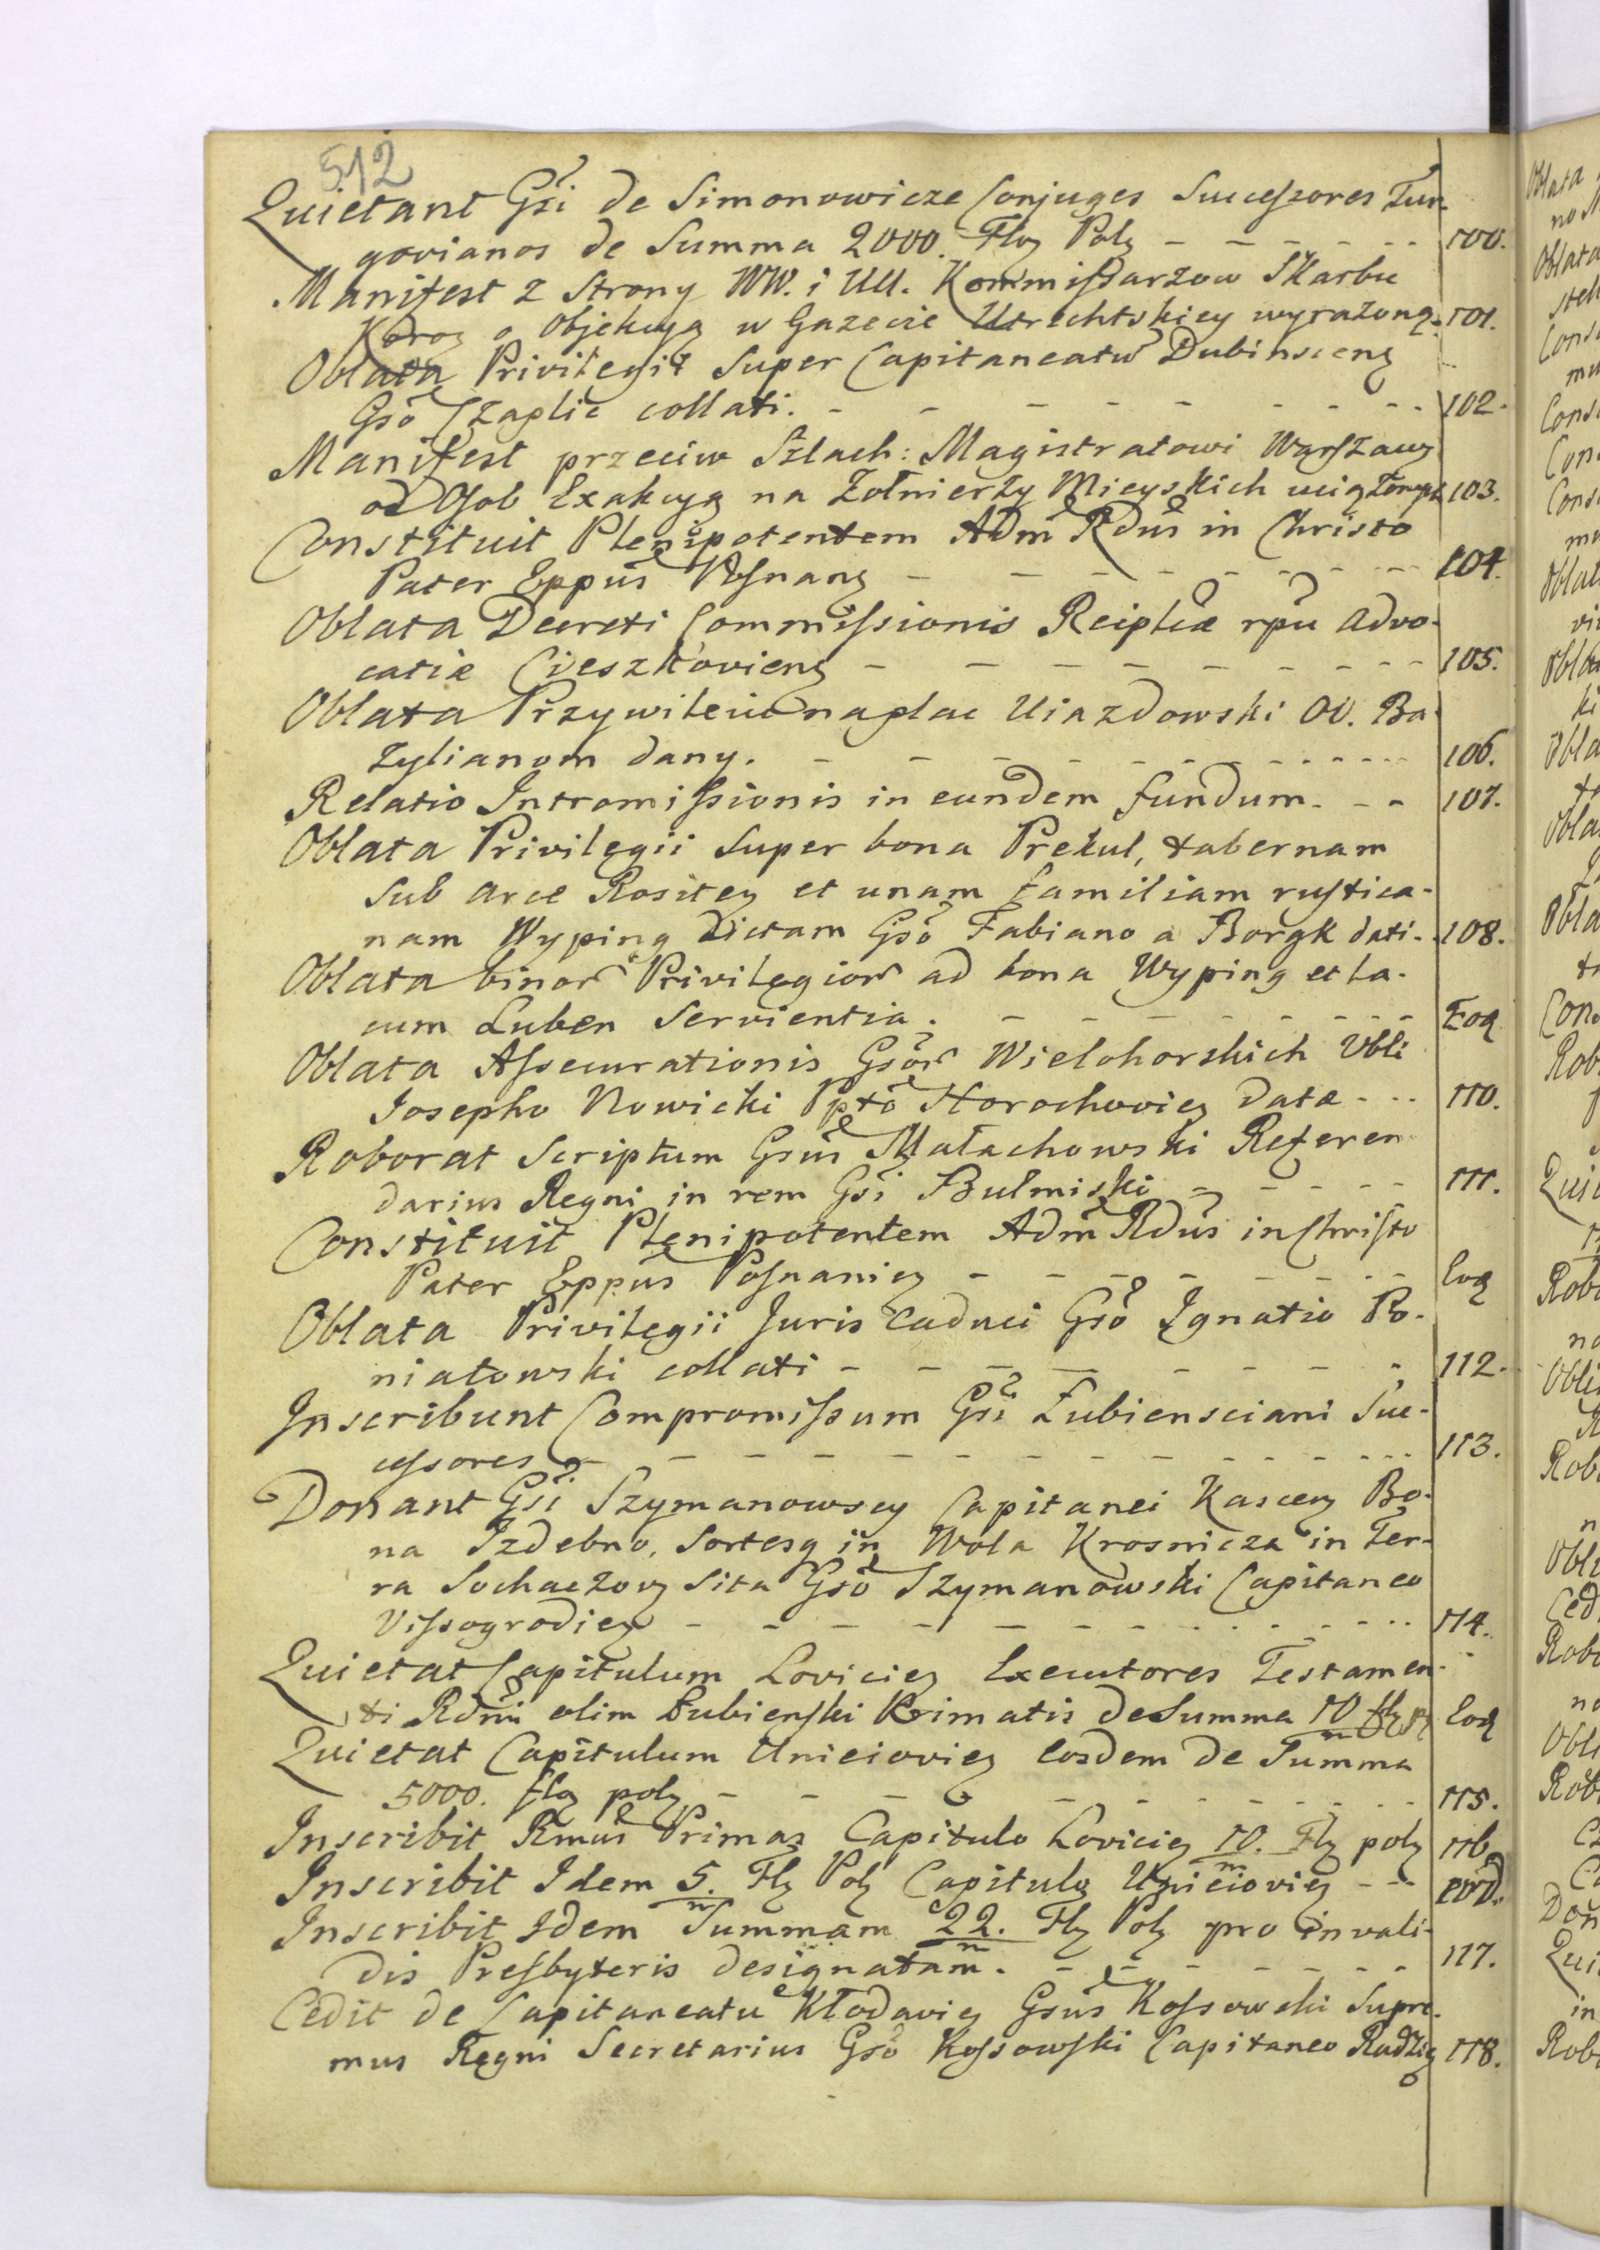 512
Quietant Gsi de Simonowicze Conjuges Successores Tur-
govianos de Summa 2000. Flor Pol - - - - - - 100.
Manifest z Strony WW. i UU. Kommissarzow Skarbu
Koro o Objekcyą w Gazecie Utrechtskiey wyrażoną. 101.
Oblata Privilegii Super Capitaneatu Dubinscen
Gso Czaplic collati. - - - - - - - - 102.
Manifest przeciw Szlach: Magistratowi Warszaw
od Osob Exakcyą na Żołnierzy Mieyskich uciążonych 103.
Constituit Plenipotentem Adm Rdus in Christo
Pater Eppus Posnan - - - - - - - - 104.
Oblata Decreti Commissionis Reiplicæ rpu Advo-
catiæ Cieszkovien - - - - - - - - 105.
Oblata Przywileiu na plac Uiazdowski OO. Ba-
zylianom dany. - - - - - - - - 106.
Relatio Intromissionis in eundem fundum. - - 107.
Oblata Privilegii Super bona Prekul, tabernam
Sub arce Rositen et unam familiam rustica-
nam Wyping dictam Gso Fabiano a Borgk dati. 108.
Oblata binor Privilegior ad bona Wyping et la-
cum Luben Servientia. - - - - - - Eod
Oblata Assecurationis Gsor Wielohorskich Vbli
Josepho Nowicki Ppto Horochovien datæ - - - 110.
Roborat Scriptum Gsus Małachowski Referen
darius Regni in rem Gsi Bulmiski - - - - - 111.
Constituit Plenipotentem Adm Rdus in Christo
Pater Eppus Posnanien - - - - - - - Eod
Oblata Privilegii Juris Caduci Gso Ignatio Po-
niatowski collati - - - - - - - - 112.
Inscribunt Compromissum Gsi Łubiensciani Suc-
cessores - - - - - - - - - - 113.
Donant Gsi Szymanowscy Capitanei Kascen Bo-
na Izdebno, Sortesq in Wola Krosnicza in Ter-
ra Sochaczov Sita Gso Szymanowski Capitaneo
Vissogrodien - - - - - - - - - 114.
Quietat Capitulum Lovicien Executores Testamen-
ti Rdmi olim Łubienski Primatis de Summa 10/m fl p Eod
Quietat Capitulum Unieiovien Eosdem de Summa
5000. flo pol - - - - - - - - - - 115.
Inscribit Rmus Primas Capitulo Lovicien 10./m Fl pol 116
Inscribit Idem 5./m Fl Pol Capitulo Unieiovien - - eod.
Inscribit Idem Summam 22./m Fl Pol pro invali-
dis Presbyteris designatam. - - - - - - 117.
Cedit de Capitaneatu Kłodavien Gsus Kossowski Supre-
mus Regni Secretarius Gso Kossowski Capitaneo Radzie 118.